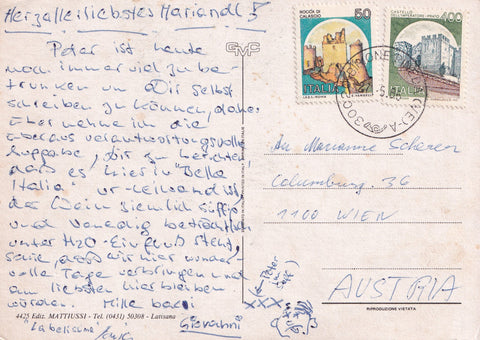 Herzallerliebstes Mariandl!
Peter ist heute
noch immer viel zu be-
trunken um Dir selbst
schreiben zu können, daher
übernehme ich die
überaus verantwortungsvolle
Aufgabe, Dir zu berichten
daß es hier in "Bella
Italia" ur-leiwand ist,
der Wein ziemlich süffig
und Venedig beträchtlich
unter H2O-Einfluß steht,
sowie daß wir hier wunder-
volle Tage verbringen und
am liebsten hierbleiben
würden. Mille baci
Giovanni
GMC
ROCCA DI CALASCIO
50
ITALIA
CASTELLO DELL'IMPERATORE - PRATO
400
ITALIA
An Marianne Scherer
Columbusg. 36
1100 WIEN
AUSTRIA
RIPRODUZIONE VIETATA
(Peter
XXX
4425 Ediz. MATTIUSSI - Tel. (0431) 50308 - Latisana